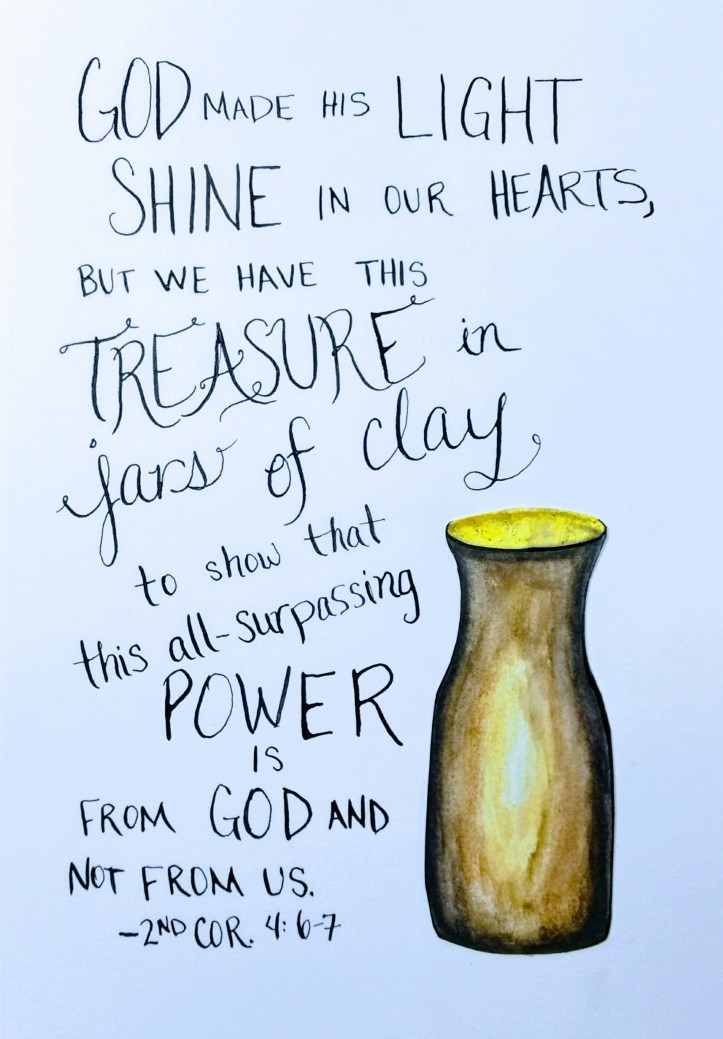 GOD MADE HIS LIGHT
SHINE IN OUR HEARTS,
BUT WE HAVE THIS
TREASURE in
jars of clay
to show that
this all-surpassing
POWER
IS
FROM GOD AND
NOT FROM US.
-2ND COR. 4:6-7